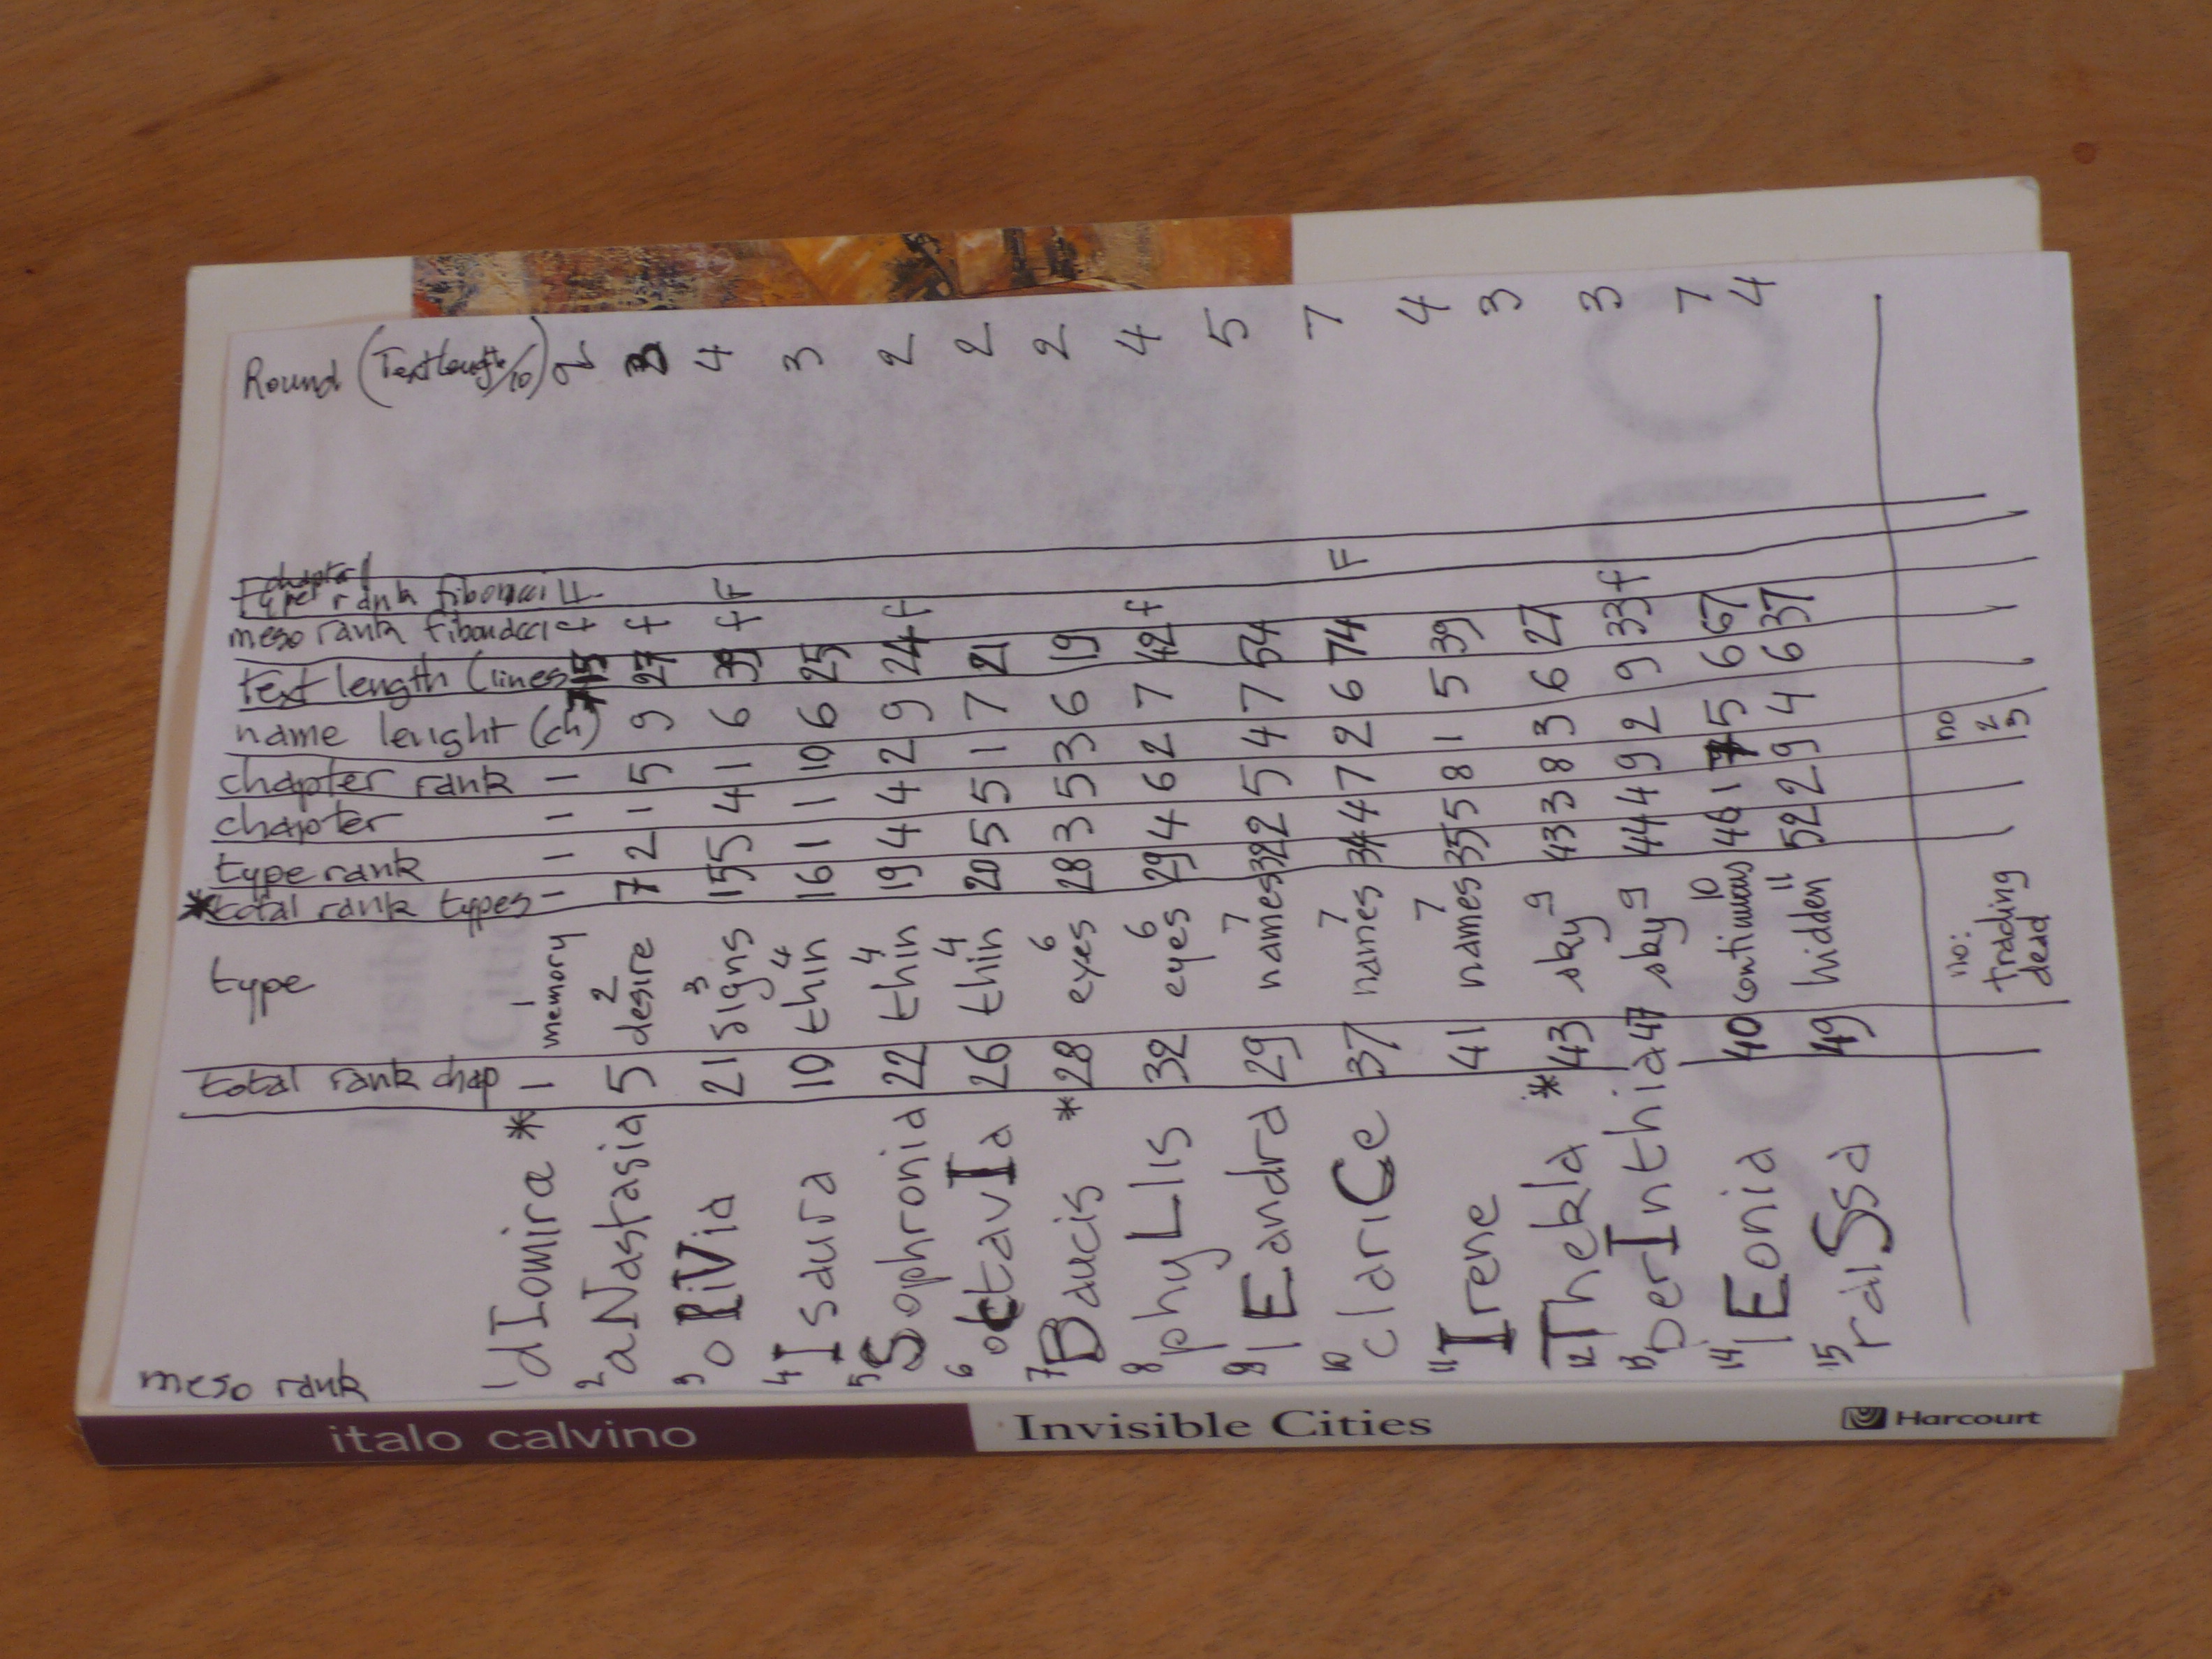 Round (Textlenght/10) 2 3 4 3 2 2 2 4 5 7 4 3 3 7 4
chapter
type rank fibonacci F F F
meso rank fibonacci f f f f f f
text length (lines 15 27 39 25 24 21 19 42 54 74 39 27 33 67 37
name lenght (ch) 7 9 6 6 9 7 6 7 7 6 5 6 9 6 6
chapter rank 1 5 1 10 2 1 3 2 4 2 1 3 2 5 4
chapter 1 1 4 1 4 5 5 6 5 7 8 8 9 7 9
type rank 1 2 5 1 4 5 3 4 2 4 5 3 4 1 2
*total rank types 1 7 15 16 19 20 28 29 32 34 35 43 44 46 52
type
1 memory
2 desire
3 signs
4 thin
4 thin
4 thin
6 eyes
6 eyes
7 names
7 names
7 names
9 sky
9 sky
10 continuous
11 hidden
total rank chap 1 5 21 10 22 26 28 32 29 37 41 43 47 40 49
meso rank
1 dIomira *
2 aNastasia
3 oliVia
4 Isaura
5 Sophronia
6 oCtavIa
7 Baucis *
8 phyLlis
9 lEandra
10 clariCe
11 Irene
12 Thekla *
13 perInthia
14 lEonia
15 raiSsa
no: trading
dead
no
2
3
italo calvino Invisible Cities Harcourt